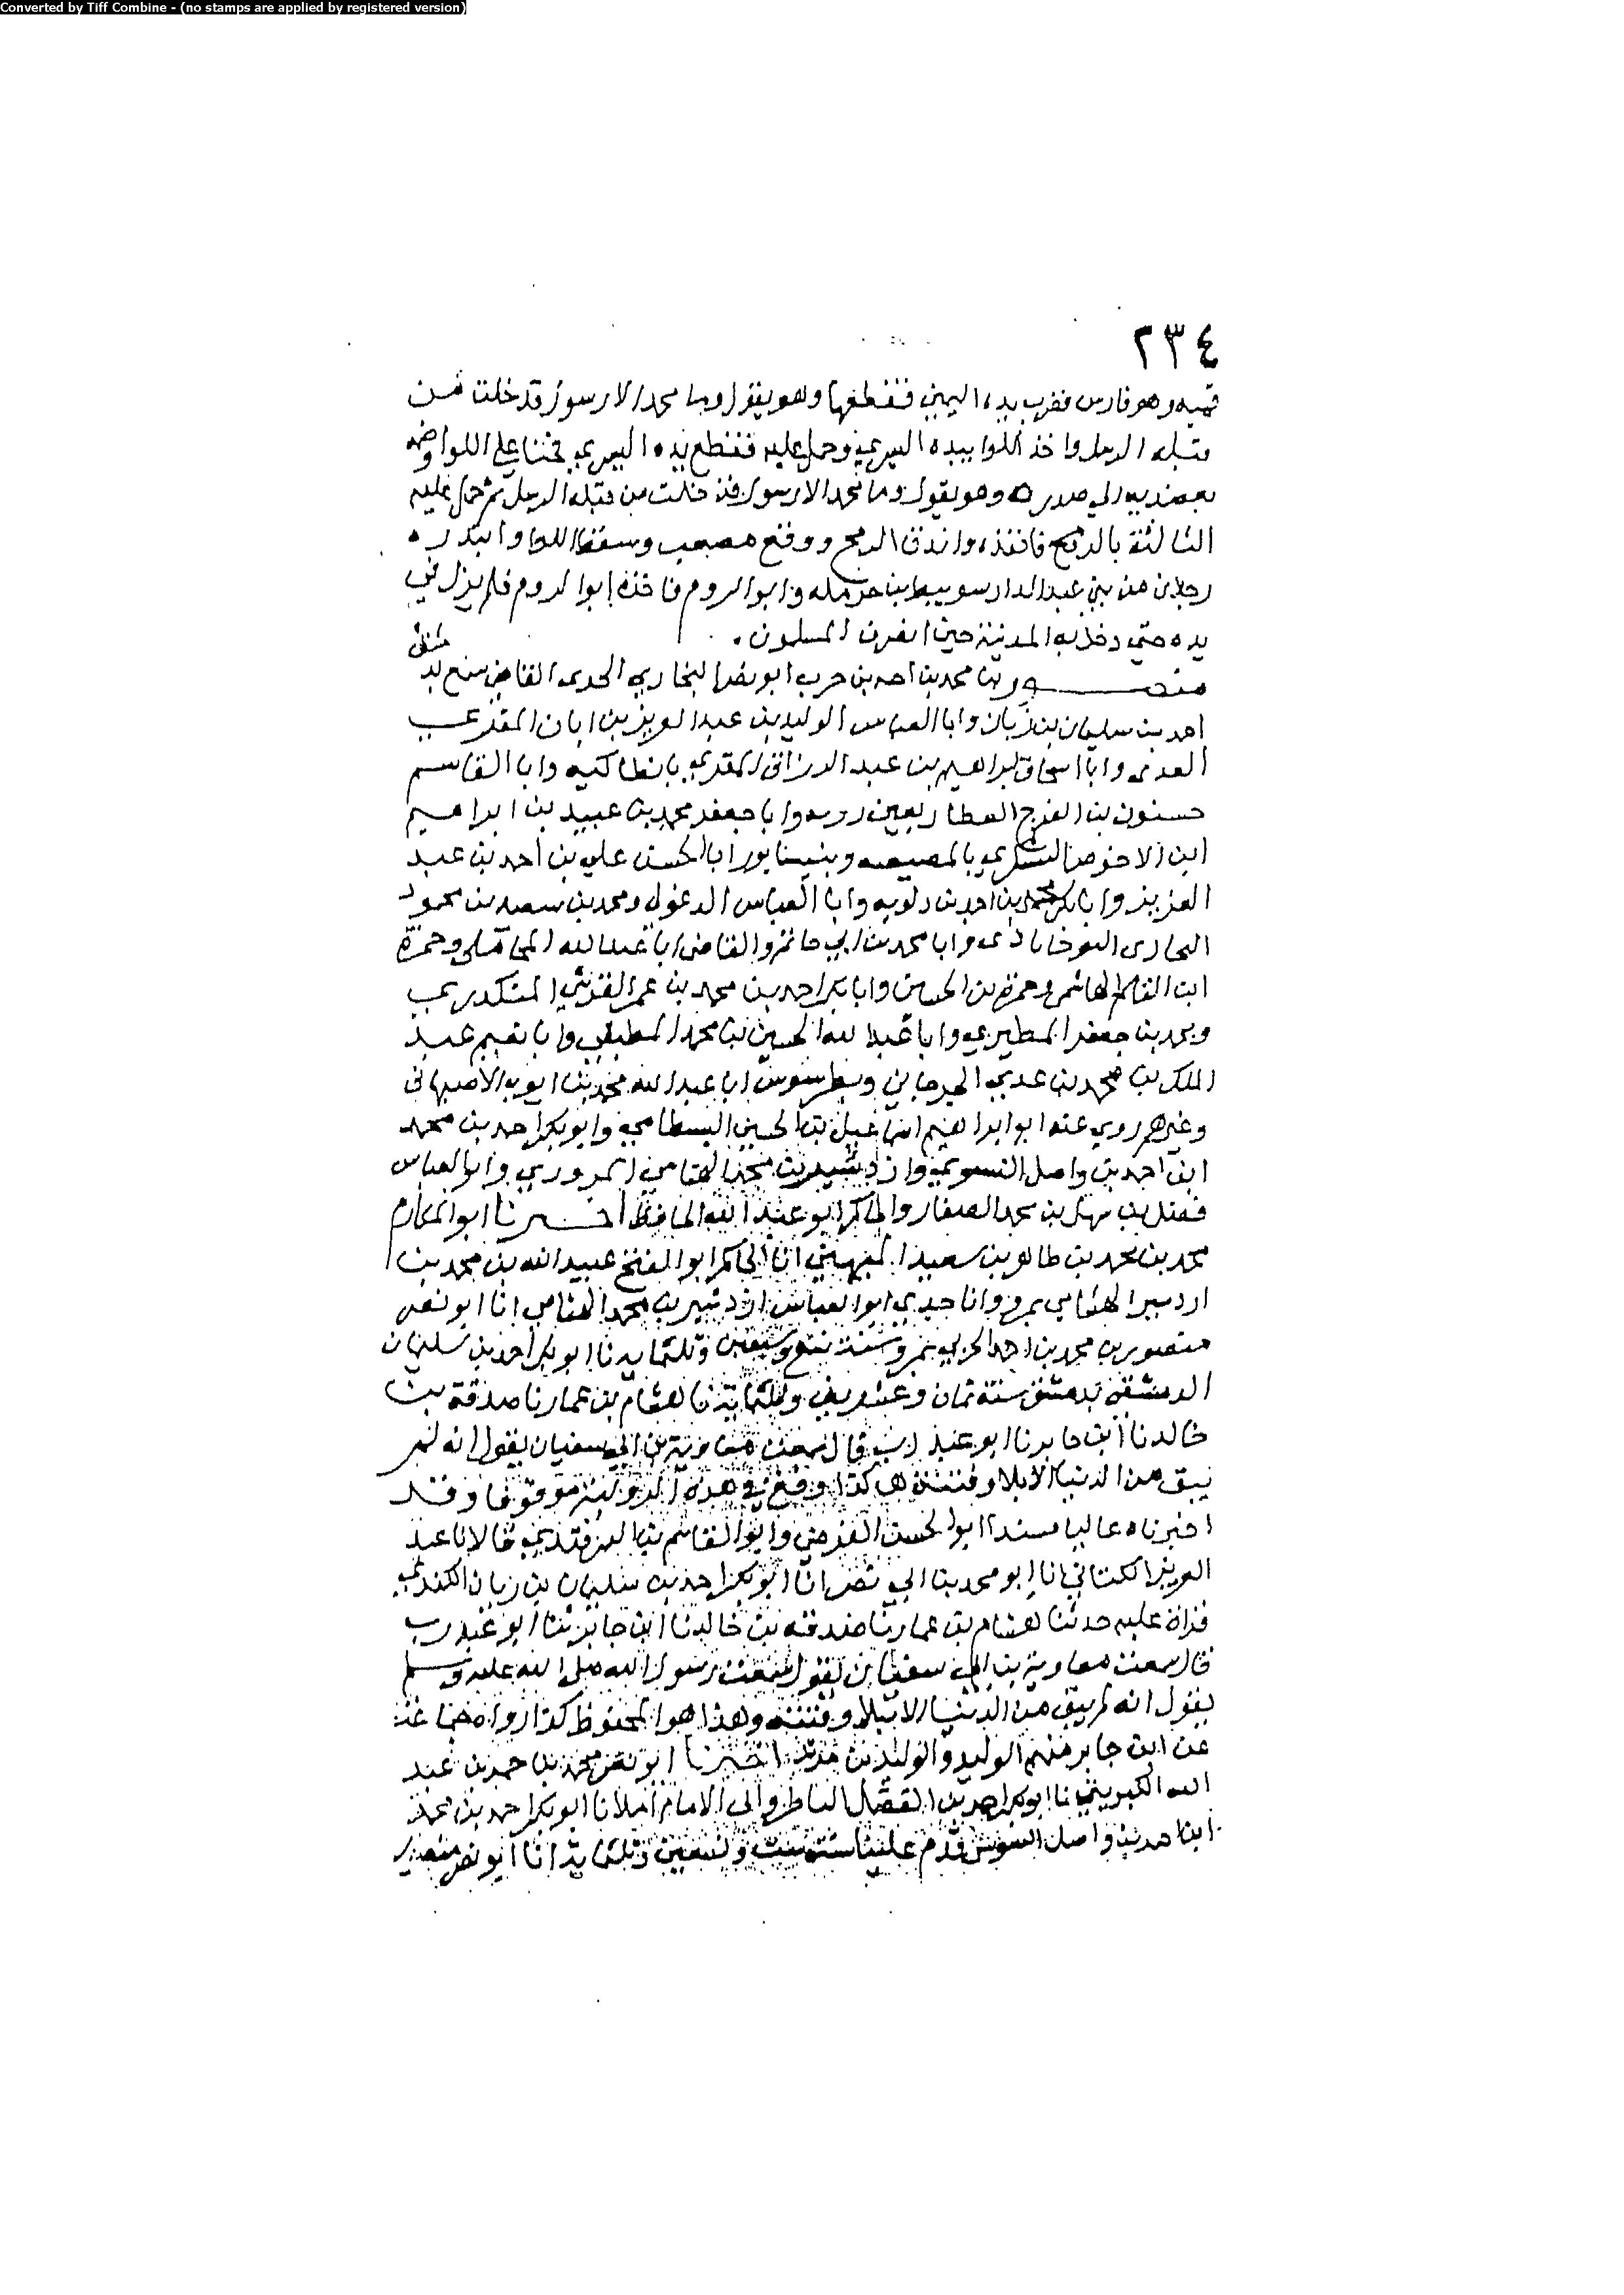 Converted by Tiff Combine - (no stamps are applied by registered version)
٢٣٤
قميه وهو فارس فضرب يده اليمنى فقطعها وهو يقول وما محمد الا رسول قد خلت من
قبله الرسل واخذ اللوا بيده اليسرى وحمل عليه فقطع يده اليسرى فحنا على اللوا وضمه
بعضديه الى صدره وهو يقول وما محمد الا رسول قد خلت من قبله الرسل ثم حمل عليه
الثالثة بالرمح فانفذه واندق الرمح ووقع مصعب وسقط اللوا وابتدره
رجلان من بني عبد الدار سويبط بن حرمله وابو الروم فاخذه ابو الروم فلم يزل في
يده حتى دخل به المدينة حين انصرف المسلمون .
منصور بن محمد بن احمد بن حرب ابو نصر البخاري الحربي القاضي سمع بدمشق
احمد بن سليمان بن زبان وابا العباس الوليد بن عبد العزيز بن ابان المقرى
وابا اسحاق ابراهيم بن عبد الرزاق المقري بانطاكيه وابا القاسم
حسنون بن الفرج العطار بعين زربه وابا جعفر محمد بن عبيد بن ابراهيم
ابن الاحوص بالمصيصه وبنيسابور ابا الحسن علي بن احمد بن عبد
العزيز وابا بكر محمد بن احمد بن دلويه وابا العباس الدغولي ومحمد بن سعيد بن محمود
البخاري وابا محمد بن ابي حاتم والقاضي ابا عبد الله المحاملى وحمزة
ابن القاسم الهاشمي وحمزه بن الحسين وابا بكر احمد بن محمد بن عمر القرشي المنكدري
ومحمد بن جعفر المطيري وابا عبد الله الحسين بن محمد المطبقي وابا نعيم عبد
الملك بن محمد بن عدي الجرجاني وبطرسوس ابا عبد الله محمد بن ايوب الاصبهانى
وغيرهم روى عنه ابو ابراهيم اسماعيل بن الحسين البسطامي وابو بكر احمد بن محمد
ابن احمد بن واصل وازدشير بن محمد الهشامي المروزي وابو العباس
فضل بن سهل بن محمد الصفار والحاكم ابو عبد الله الحافظ اخبرنا ابو المكارم
محمد بن محمد بن طاهر بن سعيد الميهني انا الحاكم ابو الفتح عبيد الله بن محمد بن
اردشير الهشامي بمرو انا جدي ابو العباس ازدشير بن محمد الهشامي انا ابو نصر
منصور بن محمد بن احمد الحربي بمرو سنة سبع وسبعين وثلثمايه نا ابو بكر احمد بن سليمان
الدمشقي بدمشق سنة ثمان وعشرين وثلثماية نا هشام بن عمار نا صدقة بن
خالد نا ابن جابر نا ابو عبد رب قال سمعت معاوية بن ابي سفيان يقول انه لم
يبق من الدنيا الا بلاء وفتنة هكذا وقع في هذه الرواية موقوفا وقد
اخبرناه عاليا مسندا ابو الحسن الفرضي وابو القاسم بن السمرقندي قالا نا عبد
العزيز الكتاني انا ابو محمد بن ابي نصر انا ابو بكر احمد بن سليمان بن زبان الكندي
قراة عليه حدثنا هشام بن عمار نا صدقه بن خالد نا ابن جابر ثنا ابو عبد رب
قال سمعت معاوية بن ابي سفيان يقول سمعت رسول الله صلى الله عليه وسلم
يقول انه لم يبق من الدنيا الا بلاء وفتنة وهذا هو المحفوظ كذا رواه جماعة
عن ابن جابر منهم الوليد والوليد بن مزيد اخبرنا ابو نصر محمد بن حمد بن عبد
الله الكبريتي نا ابو بكر احمد بن الفضل الباطرقاني الامام املا نا ابو بكر احمد بن محمد
ابن احمد بن واصل قدم علينا سنة وتسعين وثلثماية انا ابو نصر منصور